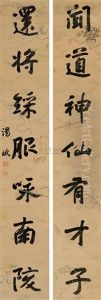 聞道神仙有才子
還將綵服咏南陔